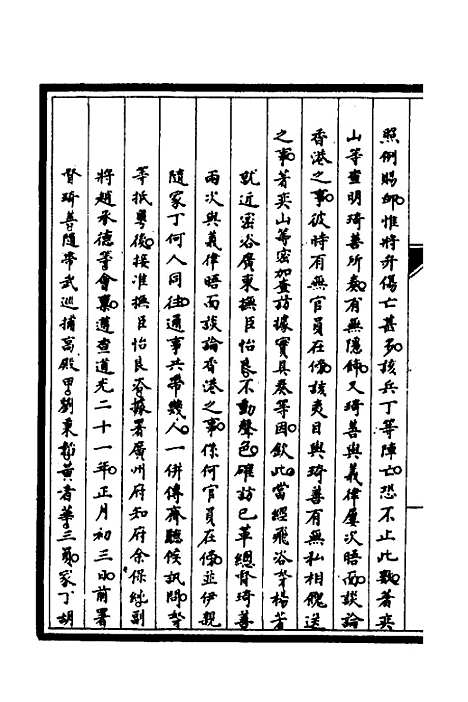 照例賜卹惟將弁傷亡甚多該兵丁等陣亡恐不止此數著奕
山等查明琦善所奏有無隱飾又琦善與義律屢次晤面談論
香港之事彼時有無官員在傍該夷目與琦善有無私相餽送
之事著奕山等密加查訪據實具奏等因欽此當經飛咨奴才楊芳
就近密咨廣東撫臣怡良不動聲色確訪已革總督琦善
兩次與義律晤面談論香港之事係何官員在傍並伊親
隨家丁何人同往通事共帶幾人一併傳齊聽候訊問奴才
等抵粵後接准撫臣怡良咨據署廣州府知府余保純副
將趙承德等會稟遵查道光二十一年正月初三日前署
督琦善隨帶武巡捕高殿甲劉東黃者華三員家丁胡